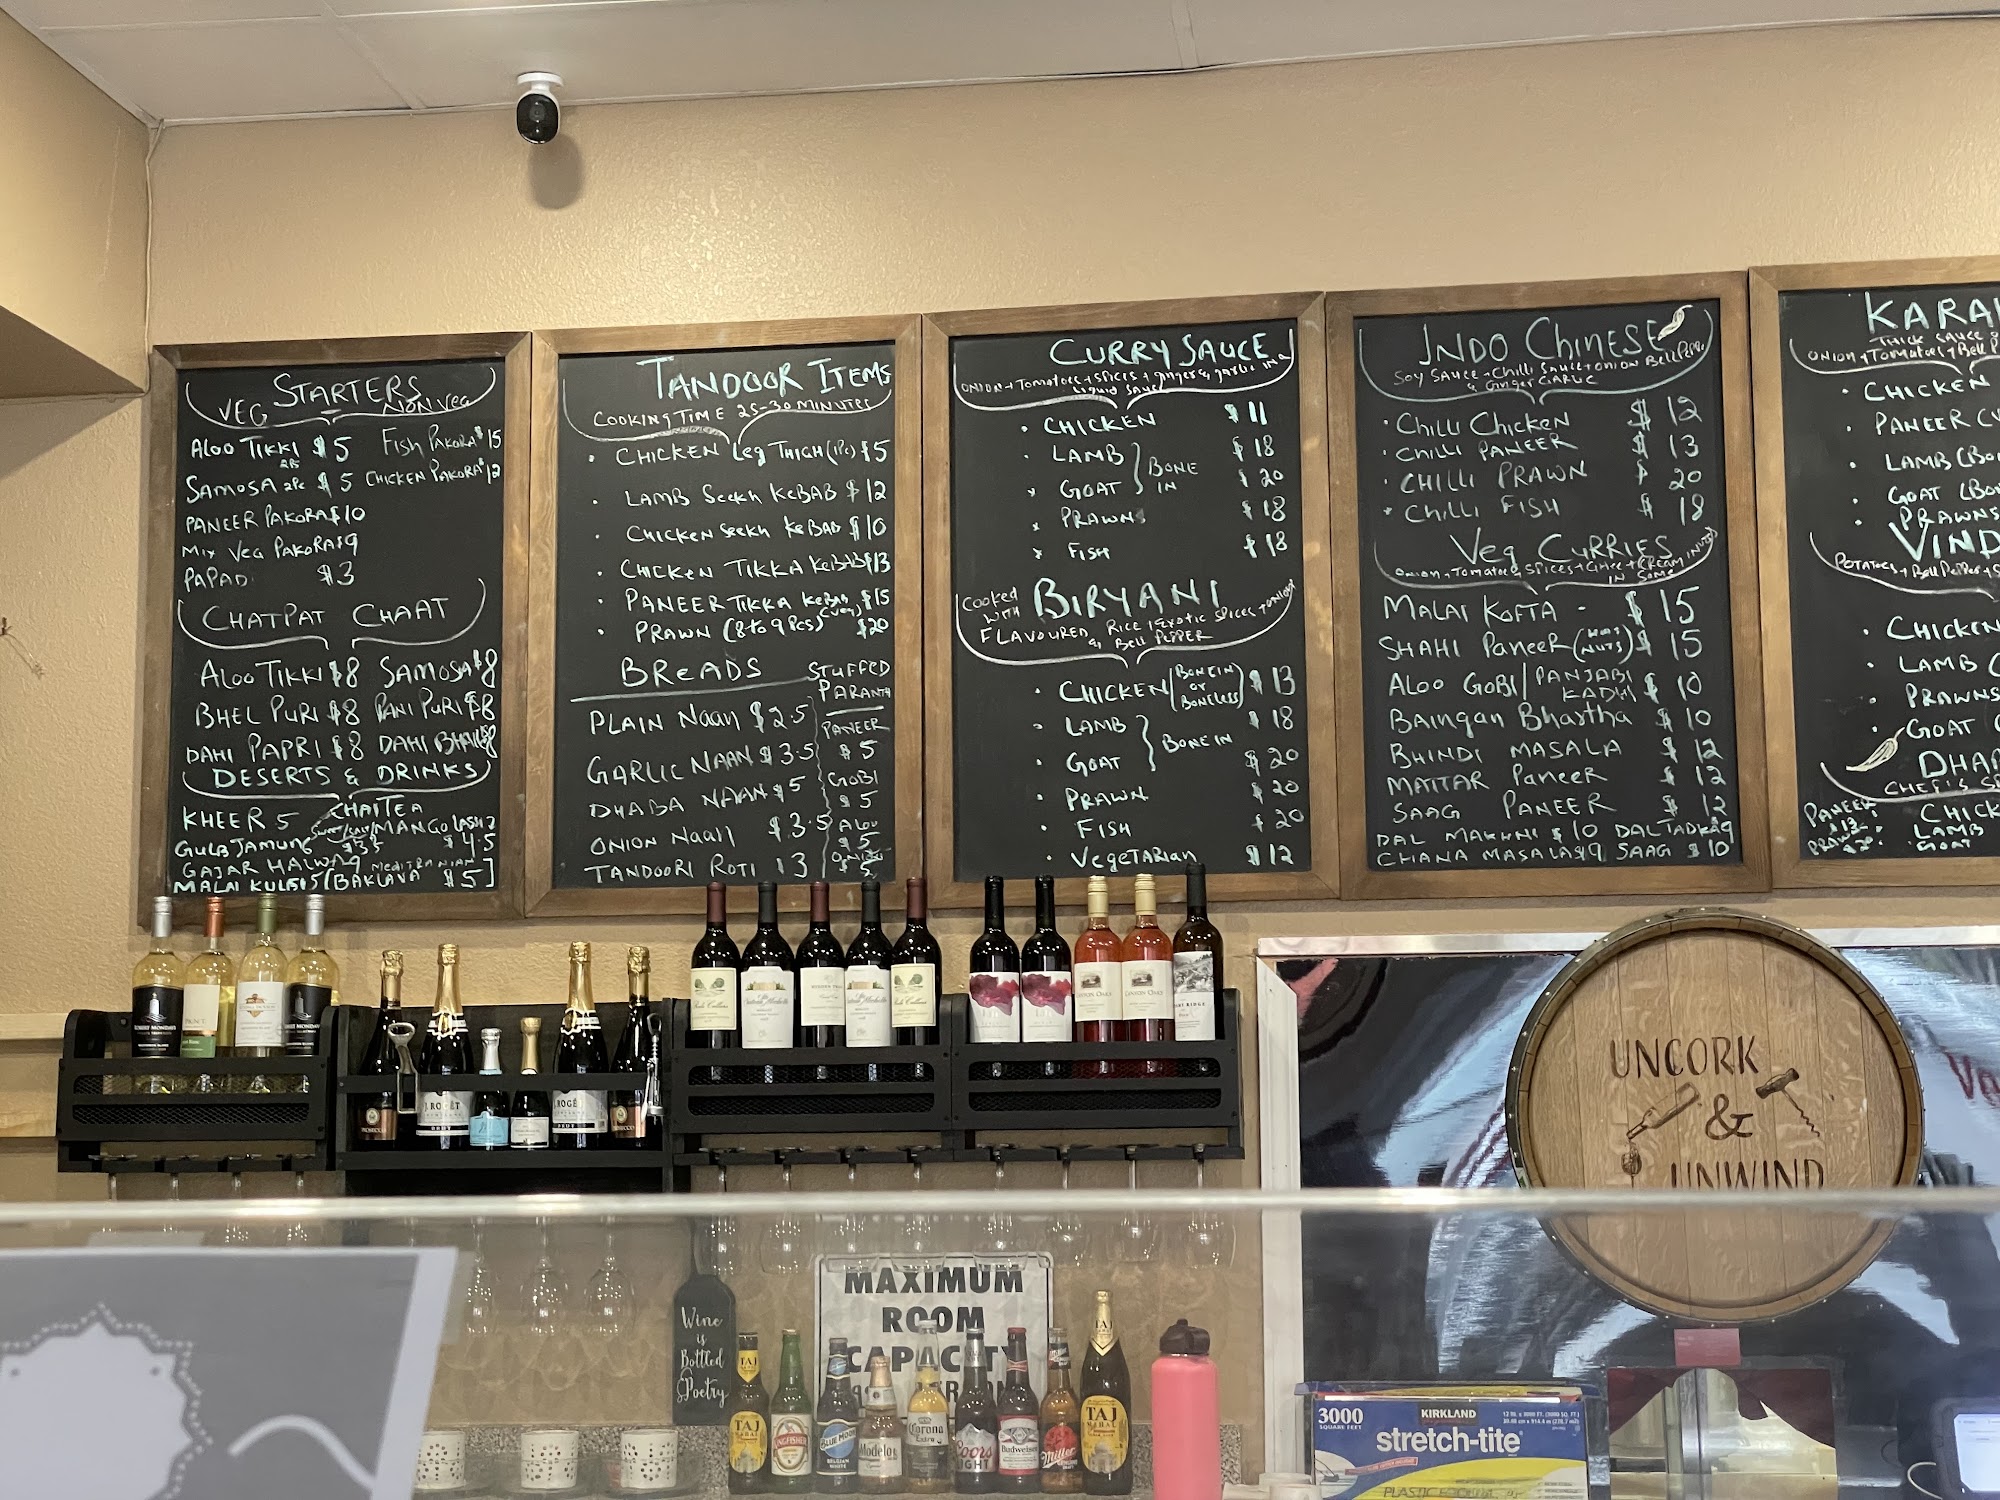 STARTERS
VEG NON VEG
ALOO TIKKI $5 FISH PAKORA $15
2PS
SAMOSA 2PC $5 CHICKEN PAKORA $12
PANEER PAKORA $10
MIX VEG PAKORA $9
PAPAD $3
CHATPAT CHAAT
ALOO TIKKI $8 SAMOSA $8
BHEL PURI $8 PANI PURI $8
DAHI PAPRI $8 DAHI
DESERTS & DRINKS
KHEER 5 CHAI TEA
MANGO LASSI
GULB JAMUNS $4.5
GAJAR HALWA 9
MALAI KULFI 5 [BAKLAVA $5]
TANDOOR ITEMS
COOKING TIME 25-30 MINUTES
CHICKEN Leg THIGH (1Pc) $5
LAMB SeeKH KeBAB $12
CHICKEN SeeKH KeBAB $10
CHICKEN TIKKA KeBAB $13
PANEER TIKKA KeBAB $15
(VEG)
PRAWN (8 to 9 PCS) $20
BREADS
STUFFED
PARANTH
PLAIN NAAN $2.5
PANEER
$5
GARLIC NAAN $3.5
GOBI
$5
DHABA NAAN $5
ONION NAAN $3.5
ALOO
$5
TANDOORI ROTI 3
ONION
5
CURRY SAUCE
ONION + Tomatoes + SPICES + GINGER & GARLIC IN A
LIQUID SAUCE
CHICKEN $11
LAMB $18
BONE IN
GOAT $20
PRAWNS $18
FISH $18
COOKED WITH BIRYANI
FLAVOURED RICE EXOTIC SPICES + ONION
& BELL PEPPER
CHICKEN (BONE IN OR BONELESS) $13
LAMB $18
BONE IN
GOAT $20
PRAWN $20
FISH $20
VegeTARIAN $12
INDO CHINESE
SOY SAUCE + CHILLI SAUCE + ONION BELL PEPPER
& GINGER GARLIC
CHILLI CHICKEN $12
CHILLI PANEER $13
CHILLI PRAWN $20
CHILLI FISH $18
VEG CURRIES
ONION + TOMATOES SPICES + CREAM
IN SOME
MALAI KOFTA - $15
SHAHI PANEER (NUTS) $15
ALOO GOBI / PANJABI KADHI $10
BAINGAN BHARTHA $10
BHINDI MASALA $12
MATTAR PANEER $12
SAAG PANEER $12
DAL MAKHNI $10 DAL TADKA $9
CHANA MASALA $9 SAAG $10
KARA
THICK SAUCE
ONION + TOMATOES + Bell P
CHICKEN
PANEER
LAMB (BO
GOAT (BO
PRAWNS
VIND
POTATOES + BELL PEPPER +
CHICKEN
LAMB (
PRAWNS
GOAT (
DHA
CHEF'S S
PANEER CHICK
$13
LAMB
GOAT
ROBERT MONDAVI
J. ROGÉT
BRUT
PROSECCO
J. ROGÉT
BRUT
PROSECCO
CANYON OAKS
CANYON OAKS
UNCORK
&
UNWIND
Wine
is
Bottled
Poetry
MAXIMUM
ROOM
CAPACITY
TAJ
TAJ
MAHAL
KINGFISHER
BLUE MOON
BELGIAN
WHITE
Modelo
Corona
Extra
Coors
LIGHT
Budweiser
Miller
TAJ
TAJ
MAHAL
3000
SQUARE FEET
KIRKLAND
stretch-tite
PLASTIC FOOD